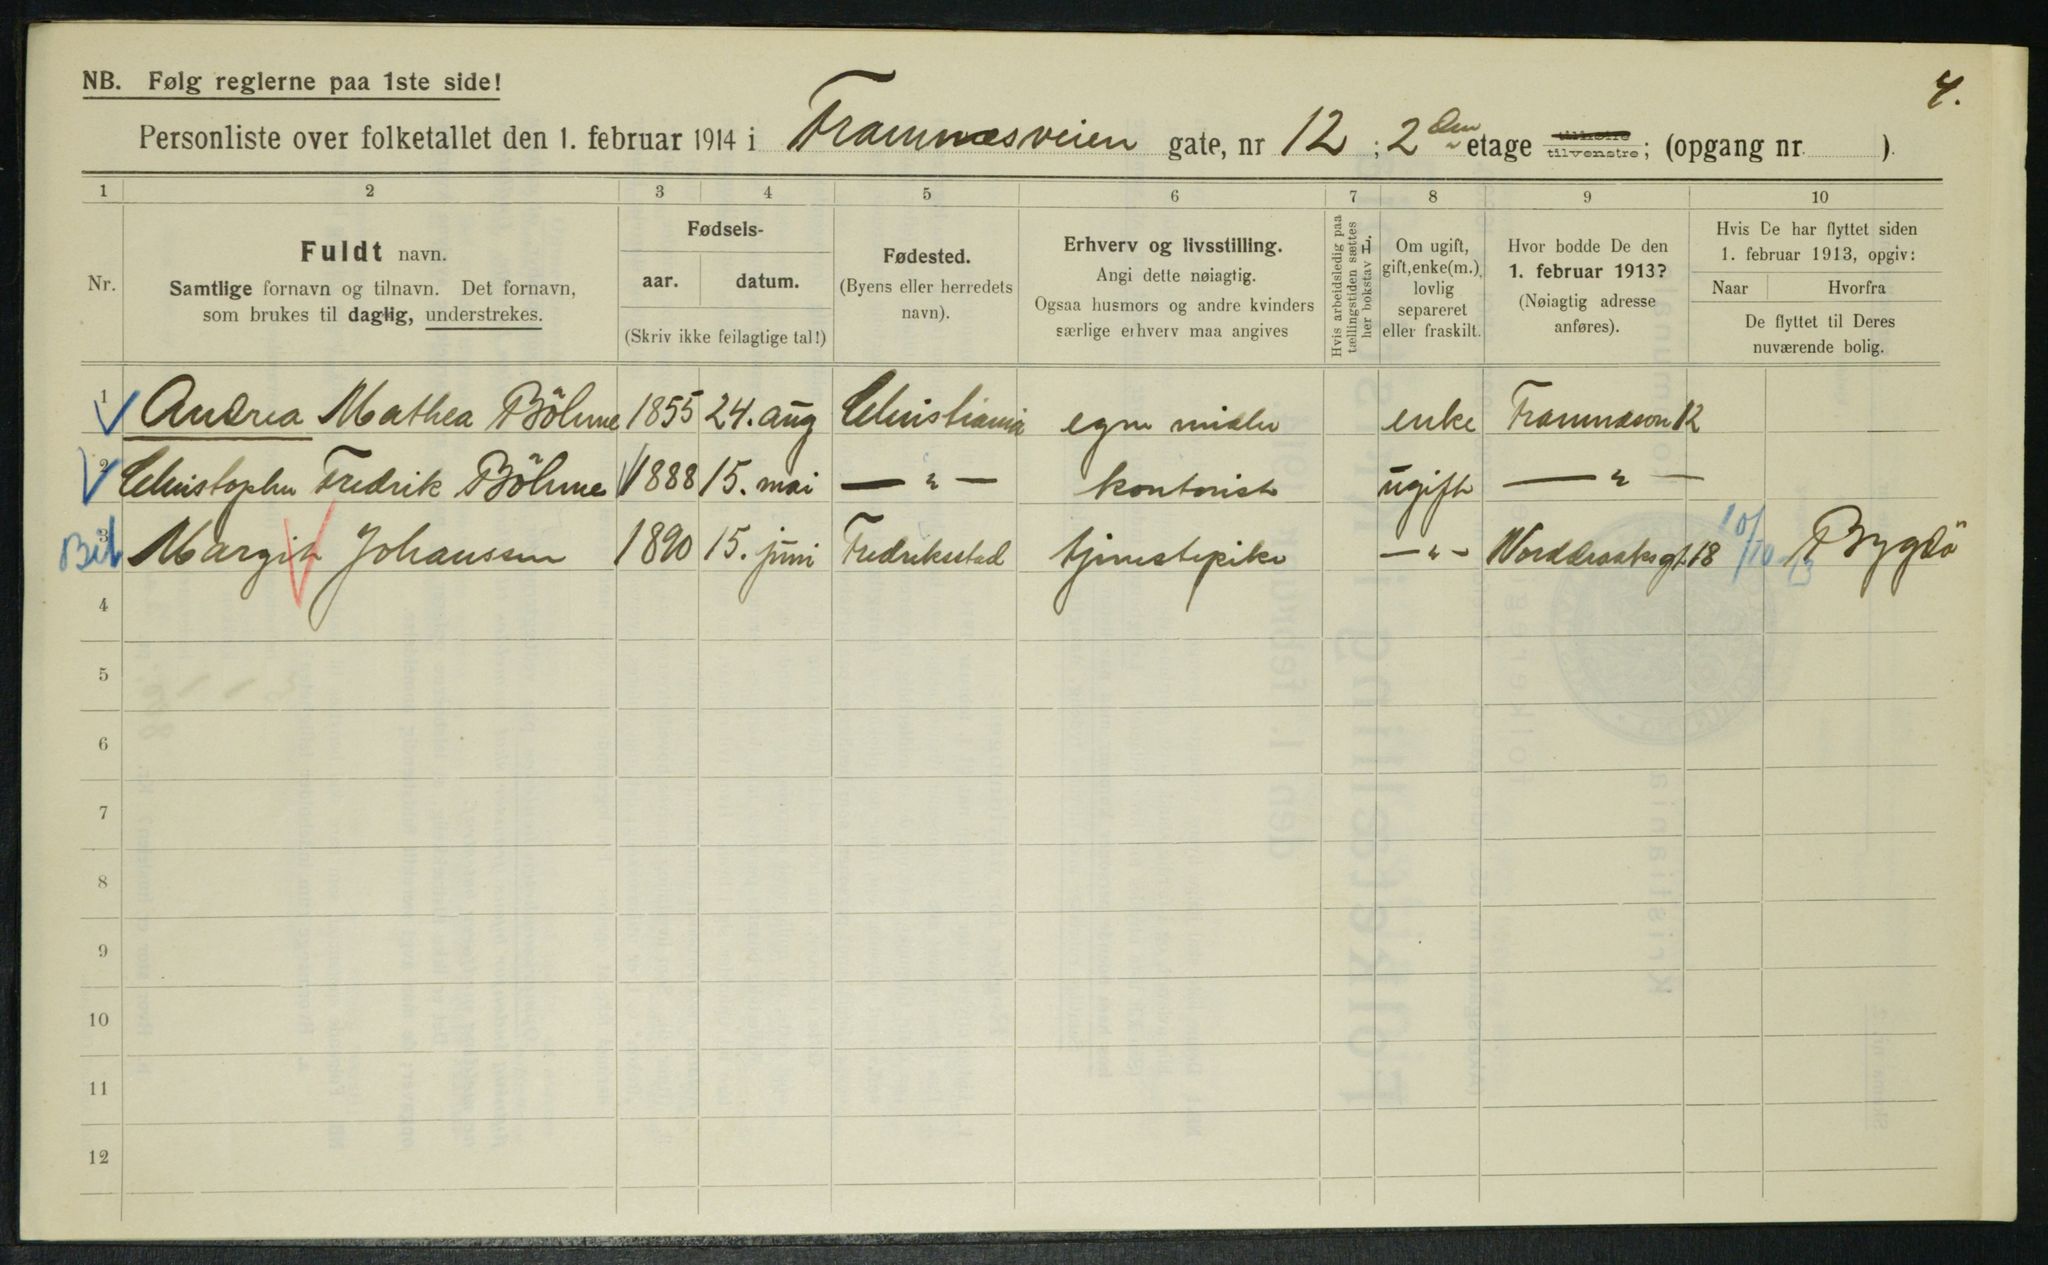 4.
NB. Følg reglerne paa 1ste side!
Personliste over folketallet den 1. februar 1914 i Framnæsveien gate, nr 12 ; 2den etage tilhøire tilvenstre; (opgang nr. ).
1 2 3 4 5 6 7 8 9 10
Nr.
Fuldt navn.
Samtlige fornavn og tilnavn. Det fornavn,
som brukes til daglig, understrekes.
Fødsels-
aar. datum.
(Skriv ikke feilagtige tal!)
Fødested.
(Byens eller herredets
navn).
Erhverv og livsstilling.
Angi dette nøiagtig.
Ogsaa husmors og andre kvinders
særlige erhverv maa angives
Hvis arbeidsledig paa
tællingstiden sættes
her bokstav L.
Om ugift,
gift, enke(m.),
lovlig
separeret
eller fraskilt.
Hvor bodde De den
1. februar 1913?
(Nøiagtig adresse
anføres).
Hvis De har flyttet siden
1. februar 1913, opgiv:
Naar Hvorfra
De flyttet til Deres
nuværende bolig.
1 Andrea Mathea Böhme 1855 24. aug Christiania egne midler enke 12
2 Christopher Fredrik Böhme 1888 15. mai — " — kontorist ugift — " —
3 Margit Johanssen 1890 15. juni Fredriksstad tjenestepike — " — Norddraaksgt. 18 10/10 13 Bygdö
4
5
6
7
8
9
10
11
12